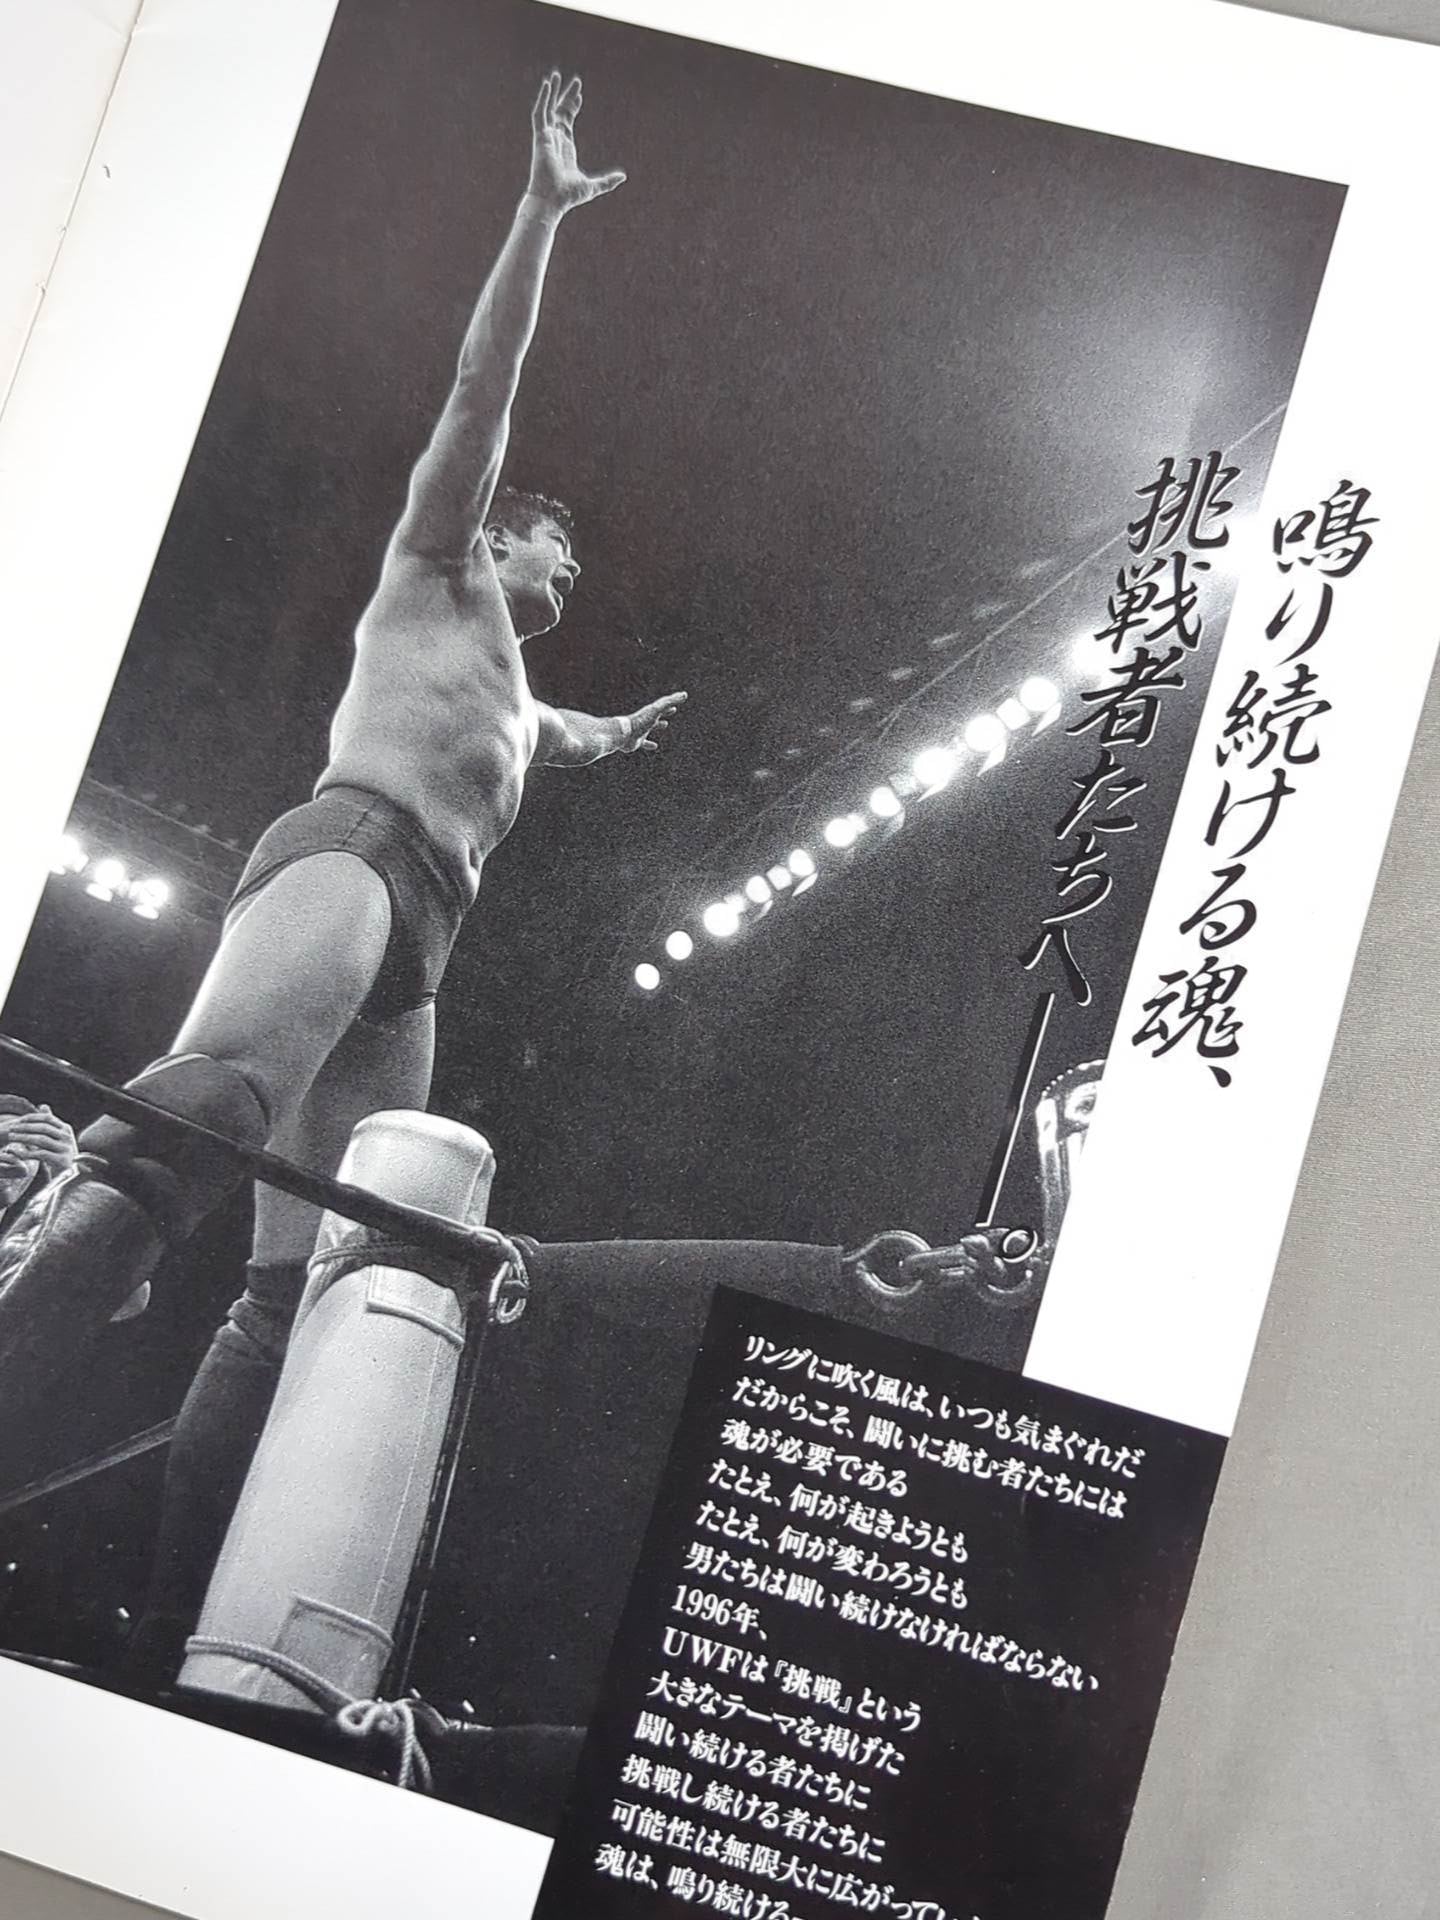 鳴り続ける魂、
挑戦者たちへ──。
リングに吹く風は、いつも気まぐれだ
だからこそ、闘いに挑む者たちには
魂が必要である
たとえ、何が起きようとも
たとえ、何が変わろうとも
男たちは闘い続けなければならない
1996年、
UWFは『挑戦』という
大きなテーマを掲げた
闘い続ける者たちに
挑戦し続ける者たちに
可能性は無限大に広がってい
魂は、鳴り続ける